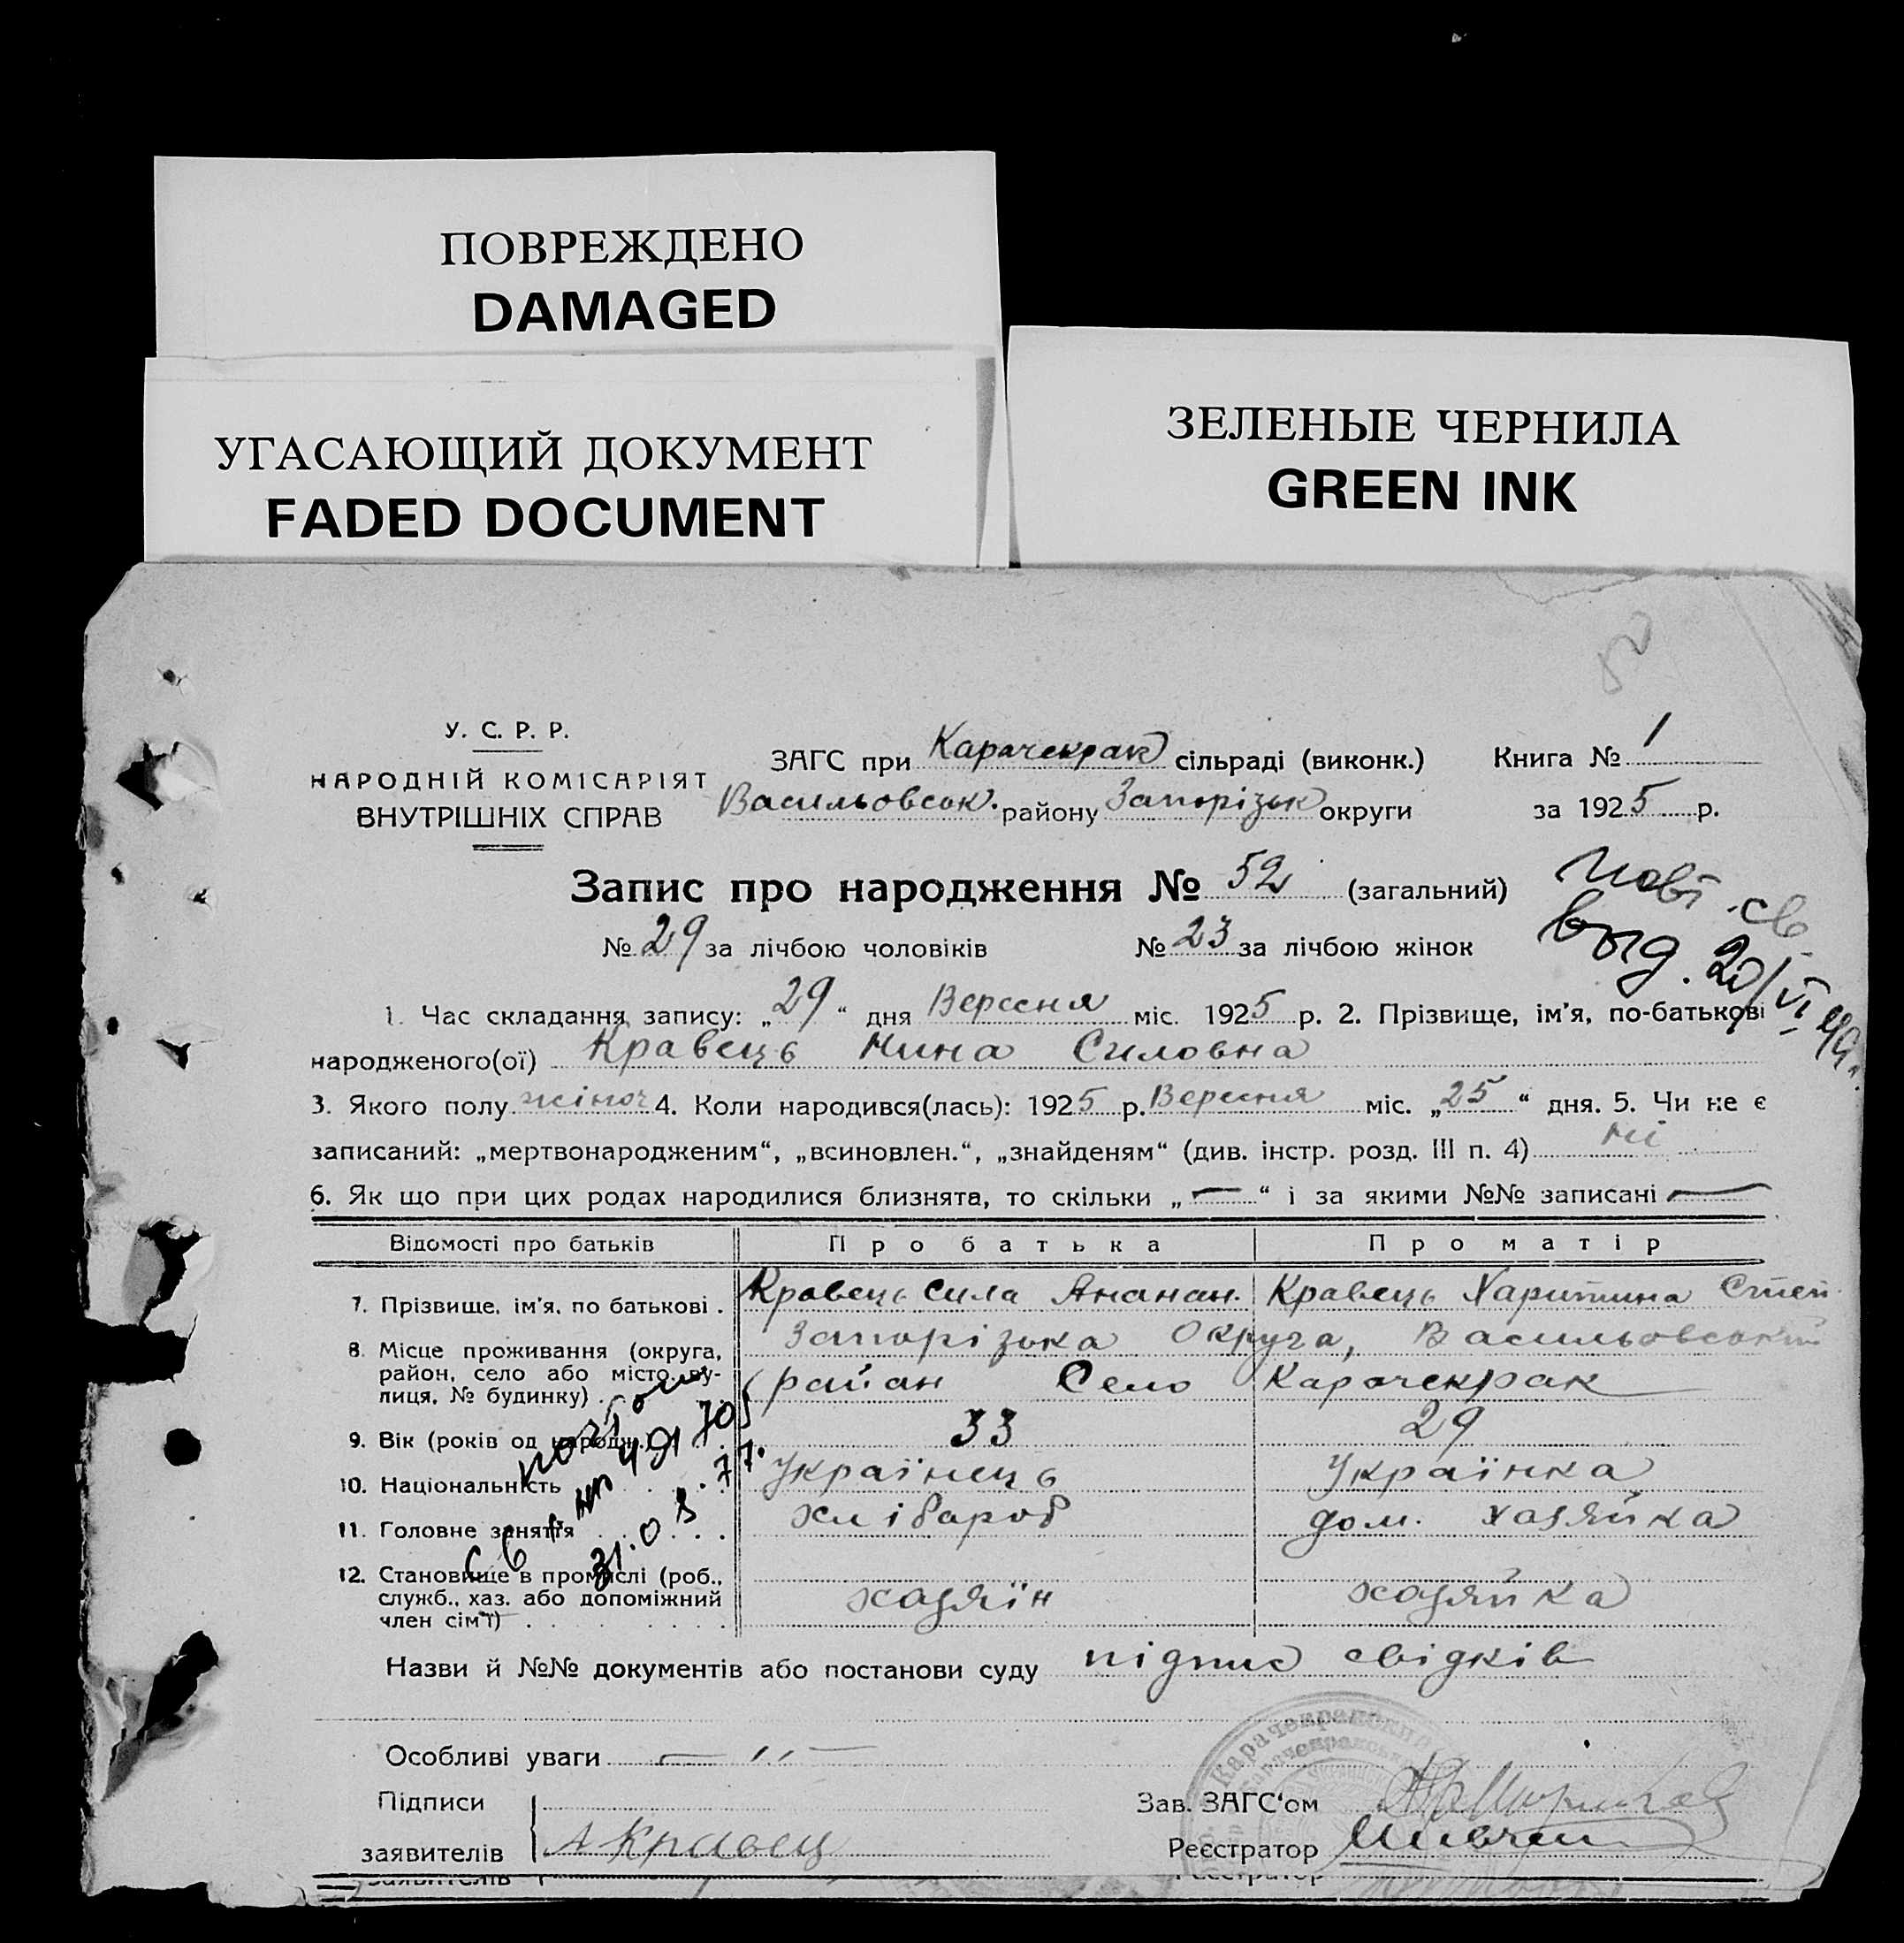 ПОВРЕЖДЕНО
DAMAGED
УГАСАЮЩИЙ ДОКУМЕНТ
FADED DOCUMENT
ЗЕЛЕНЫЕ ЧЕРНИЛА
GREEN INK
52
У. С. Р. Р.
НАРОДНІЙ КОМІСАРІЯТ
ВНУТРІШНІХ СПРАВ
ЗАГС при Карачекрак сільраді (виконк.)
Васильовськ. району Запорізьк округи
Книга № 1
за 1925 р.
Запис про народження № 52 (загальний)
№ 29 за лічбою чоловіків № 23 за лічбою жінок
св.
выд. 20/VI 49г.
1. Час складання запису: „29“ дня Вересня міс. 1925 р. 2. Прізвище, ім'я, по-батькові
народженого(ої) Кравець Нина Силовна
3. Якого полу жіноч 4. Коли народився(лась): 1925 р. Вересня міс. „25“ дня. 5. Чи не є
записаний: „мертвонародженим“, „всиновлен.“, „знайденям“ (див. інстр. розд. III п. 4) Ні
6. Як що при цих родах народилися близнята, то скільки „—“ і за якими №№ записані —
Відомості про батьків Про батька Про матір
7. Прізвище, ім'я, по батькові . Кравець Сила Ананан. Кравець Харитина Степ.
8. Місце проживання (округа, район, село або місто, вулиця, № будинку) . Запорізька Округа, Васильовський
район Село Карачекрак
9. Вік (років од народж.) 33 29
10. Національність Українець Українка
11. Головне заняття хлібароб дом. хазяйка
12. Становище в промислі (роб., служб., хаз. або допоміжний член сім'ї) хазяїн хазяйка
31.08.77.
Назви й №№ документів або постанови суду підпис свідків
Особливі уваги — ,, —
Підписи
заявителів А Кравец
Зав. ЗАГС'ом
Реєстратор